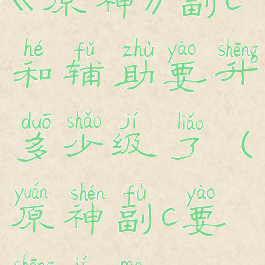 《原神》副C
hé fǔ zhù yào shēng
和辅助要升
duō shǎo jí liǎo
多少级了（
yuán shén fù yào
原神副C要
shēng jí ma